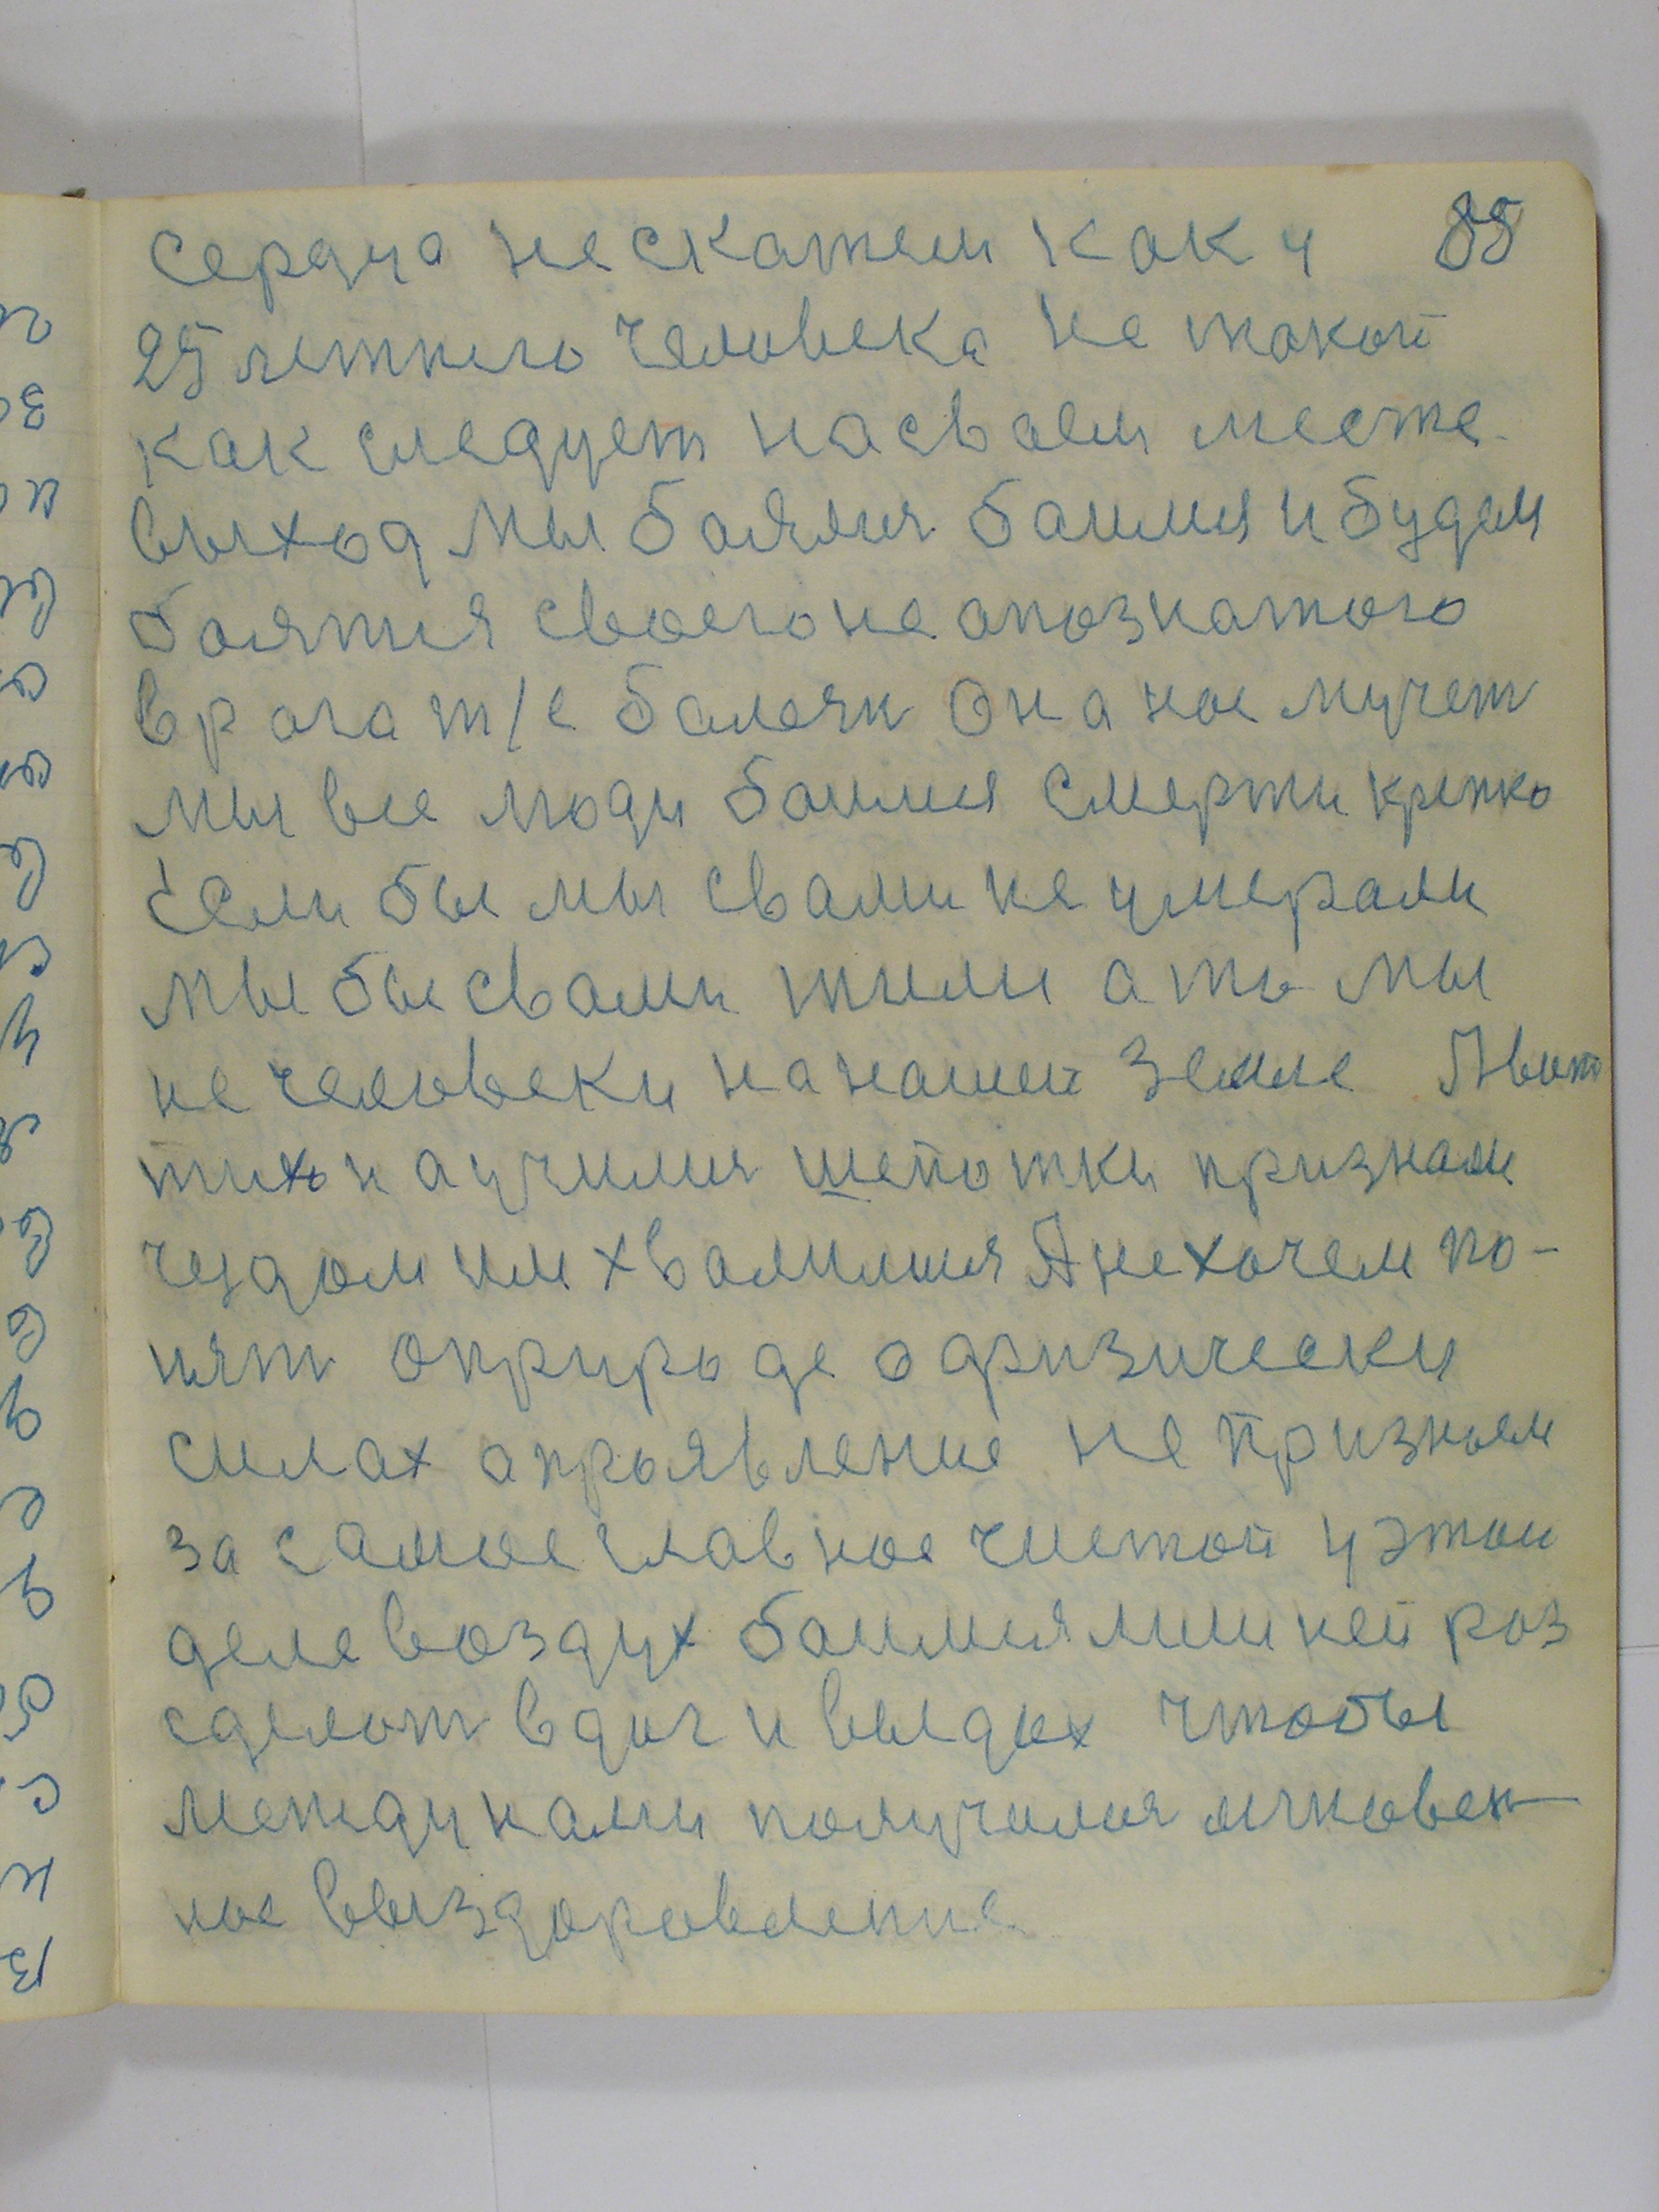 сердца не скажем как у 85
25 летнего человека не такой
как следует на сваем месте.
выход мы боялися баимся и будем
боятися своего не опознатого
врага т/е балезн Она нас мучет
мы все люди баимся смерти крепко
Если бы мы свами не умерали
мы бы свами жили а то мы
не человеки на нашей земле А вот
тихо научилися шепотки признали
чудом им хвалилися А не хочем по-
нят о природе о физически
силах опраявление не признаем
за самое главное чистой у этом
деле воздух баимся лишней раз
сделат вдох и выдох чтобы
между нами получился мгновен-
ное выздоровление